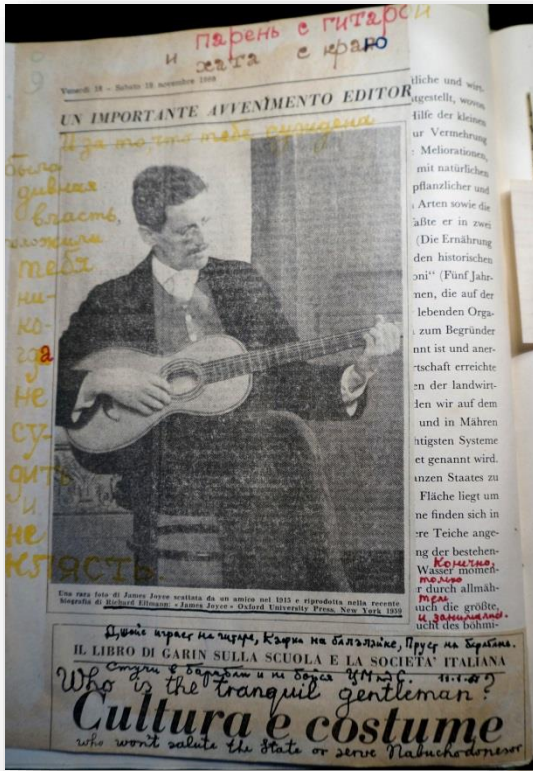 парень с гитарой
и хата с краю
Venerdì 18 - Sabato 19 novembre 1959
UN IMPORTANTE AVVENIMENTO EDITOR
И за то, что тебе суждена
была
дивная
власть,
положили
тебя
ни-
ко-
гда
не
су-
дить
и
не
КЛЯСТЬ
Una rara foto di James Joyce scattata da un amico nel 1915 e riprodotta nella recente
biografia di Richard Ellmann: «James Joyce» Oxford University Press, New York 1959
tliche und wirt-
tgestellt, wovon
Hilfe der kleinen
ur Vermehrung
Meliorationen,
mit natürlichen
pflanzlicher und
Arten sowie die
faßte er in zwei
(Die Ernährung
den historischen
oni“ (Fünf Jahr-
men, die auf der
lebenden Orga-
zum Begründer
nnt ist und aner-
rtschaft erreichte
en der landwirt-
den wir auf dem
und in Mähren
htigsten Systeme
et genannt wird.
anzen Staates zu
Fläche liegt um
ne finden sich in
ere Teiche ange-
ng der bestehen-
Конечно,
Wasser momen-
только
r durch allmäh-
тем
auch die größte,
и занимаюсь.
ucht des böhmi-
Джойс играет на гитаре, Кафка на балалайке, Пруст на барабане.
IL LIBRO DI GARIN SULLA SCUOLA E LA SOCIETA' ITALIANA
Стучи в барабан и не бойся
Who is the tranquil gentleman?
Cultura e costume
who won't salute the State or serve Nabuchodonesor